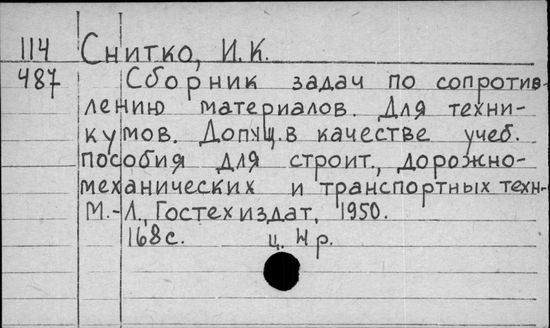 114 Снитко, И.К.
487 Сборник задач по сопротив-
лению материалов. Для техни-
кумов. Допущ. в качестве учеб.
пособия для строит., дорожно-
механических и транспортных техн-
М.-Л., Гостехиздат, 1950.
168с. ц. р.